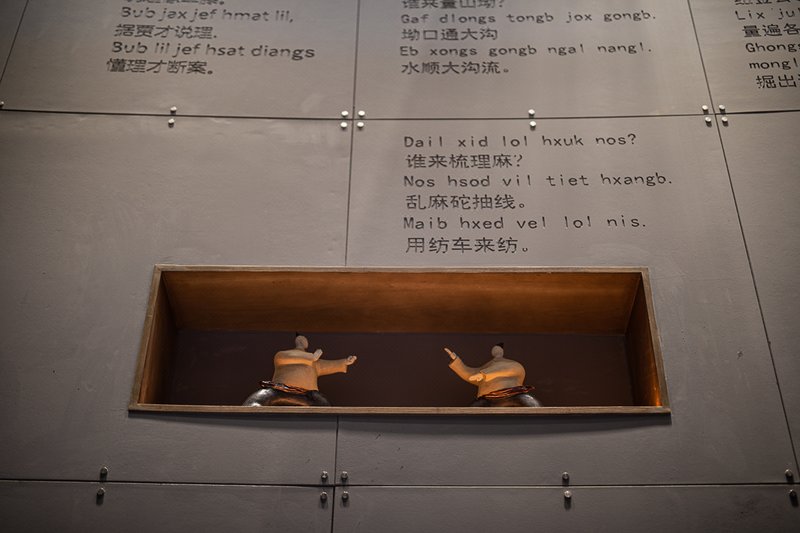 Bub jax jef hmat lil,
据贾才说理.
Bub lil jef hsat diangs
懂理才断案。
谁来量山坳?
Gaf dlongs tongb jox gongb.
坳口通大沟
Eb xongs gongb ngal nangl.
水顺大沟流。
Lix ju
量遍各
Ghong
mongl
掘出
Dail xid lol hxuk nos?
谁来梳理麻?
Nos hsod vil tiet hxangb.
乱麻砣抽线。
Maib hxed vel lol nis.
用纺车来纺。